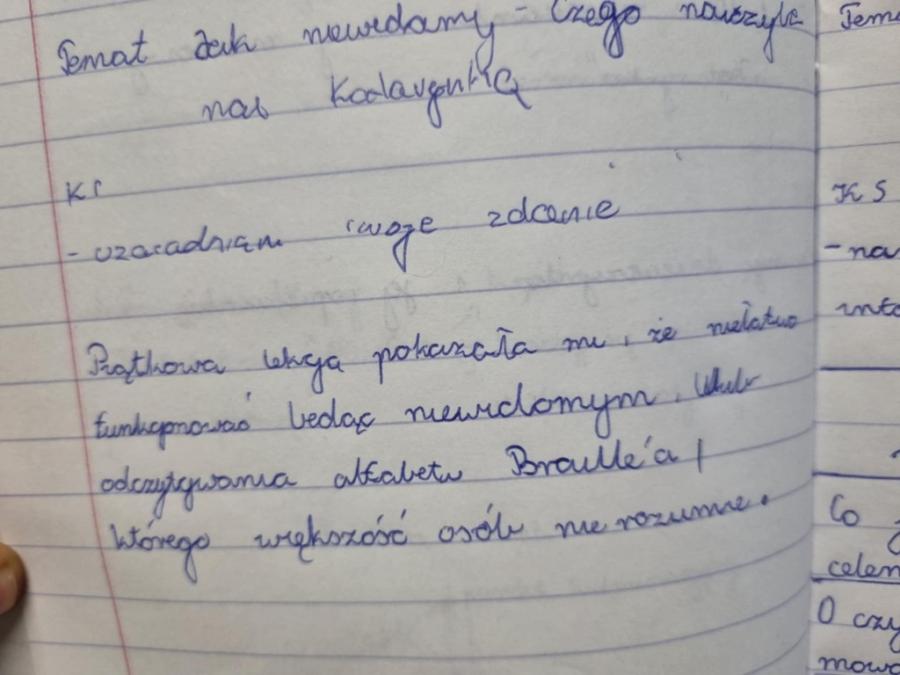 Temat Jak niewidomy - Czego nauczyła
nas
KS
- uzasadniam swoje zdanie
Piątkowa lekcja pokazała mi, że niełatwo
funkcjonować będąc niewidomym.
odczytywania alfabetu Braille'a,
którego większość osób nie rozumie.
Tema
KS
- na
into
Co
celem
O czy
mowa